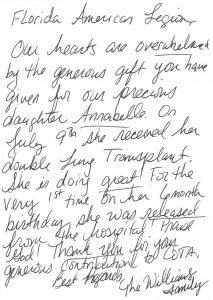 Florida American Legion,
Our hearts are overwhelmed
by the generous gift you have
given for our precious
daughter Annabelle. On
July 9th she received her
double lung Transplant.
She is doing great! For the
very 1st time on her 6 month
birthday she was released
from the hospital! Praise
God! Thank you for your
generous contribution to COTA.
Best Regards,
The Williams
Family